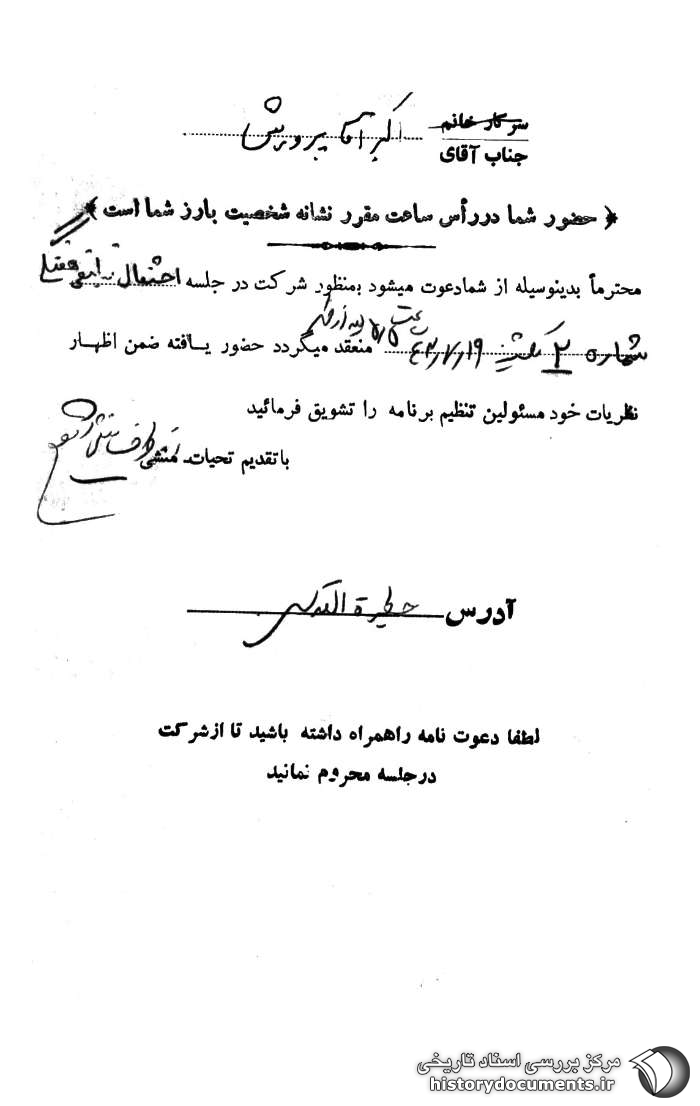 سرکار خانم
جناب آقای اکبر آقا پرورش
﴿حضور شما در رأس ساعت مقرر نشانه شخصیت بارز شما است﴾
محترماً بدینوسیله از شما دعوت میشود بمنظور شرکت در جلسه احتفال
شماره ۲ ۴۳/۷/۱۹ ساعت منعقد میگردد حضور یافته ضمن اظهار
نظریات خود مسئولین تنظیم برنامه را تشویق فرمائید
با تقدیم تحیات ـ منشی
آدرس حظیرة القدس
لطفا دعوت نامه را همراه داشته باشید تا از شرکت
در جلسه محروم نمانید
مرکز بررسی اسناد تاریخی
historydocuments.ir